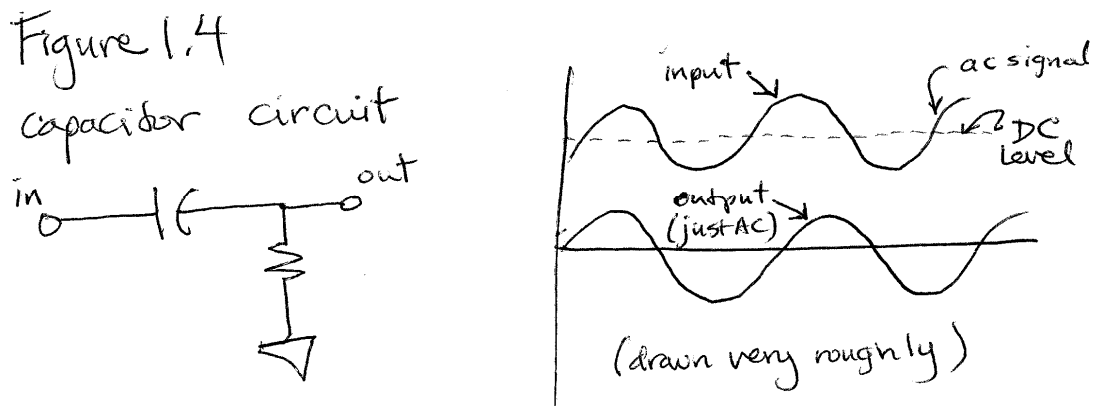 Figure 1.4
capacitor circuit
in
out
input
ac signal
DC
level
output
(just AC)
(drawn very roughly)